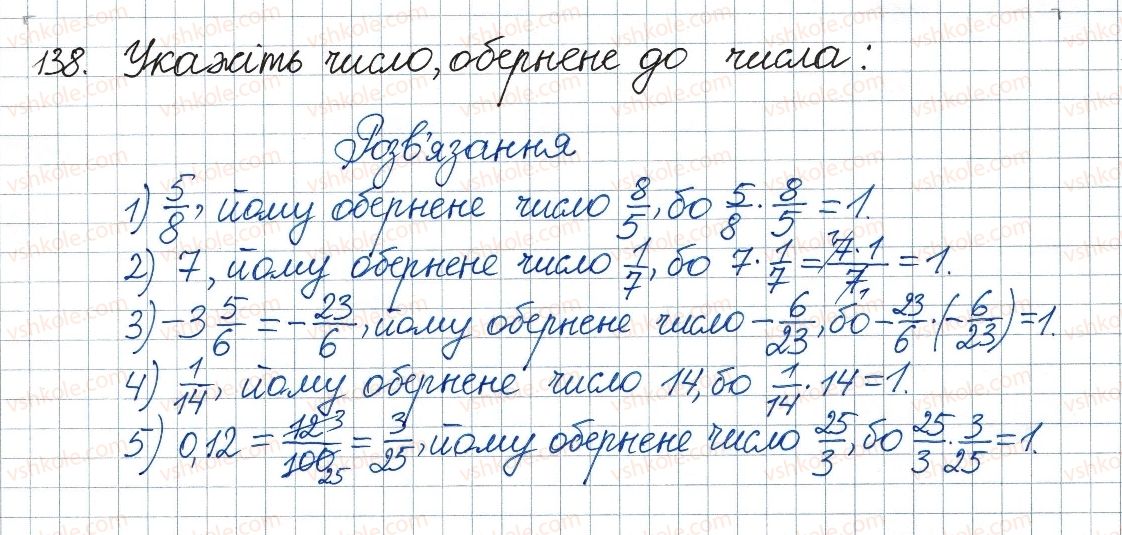 138. Укажіть число, обернене до числа:
Розв'язання
1) 5/8, йому обернене число 8/5, бо 5/8 · 8/5 = 1.
2) 7, йому обернене число 1/7, бо 7 · 1/7 = 7·1/7 = 1.
3) -3 5/6 = -23/6, йому обернене число -6/23, бо -23/6 · (-6/23) = 1.
4) 1/14, йому обернене число 14, бо 1/14 · 14 = 1.
5) 0,12 = 12 3/100 25 = 3/25, йому обернене число 25/3, бо 25/3 · 3/25 = 1.
vshkole.com